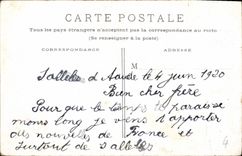 CARTE POSTALE
Tous les pays étrangers n'acceptent pas la correspondance au recto
(Se renseigner à la poste)
CORRESPONDANCE ADRESSE
M
Salleles d'Aude le 4 juin 1930
Bien cher frère
Pour que le temps te paraisse
moins long je viens t'apporter
des nouvelles de France et
surtout de Salleles
4